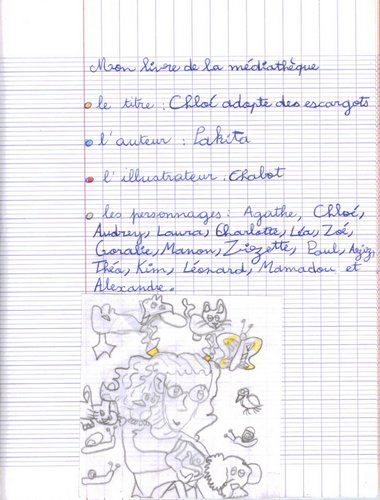 Mon livre de la médiathèque
le titre : Chloé adopte des escargots
l'auteur : Lakita
l'illustrateur : Chabot
les personnages : Agathe, Chloé,
Audrey, Laura, Charlotte, Léa, Zoé,
Coralie, Manon, Zizette, Paul, Aziz,
Théa, Kim, Léonard, Mamadou et
Alexandre.